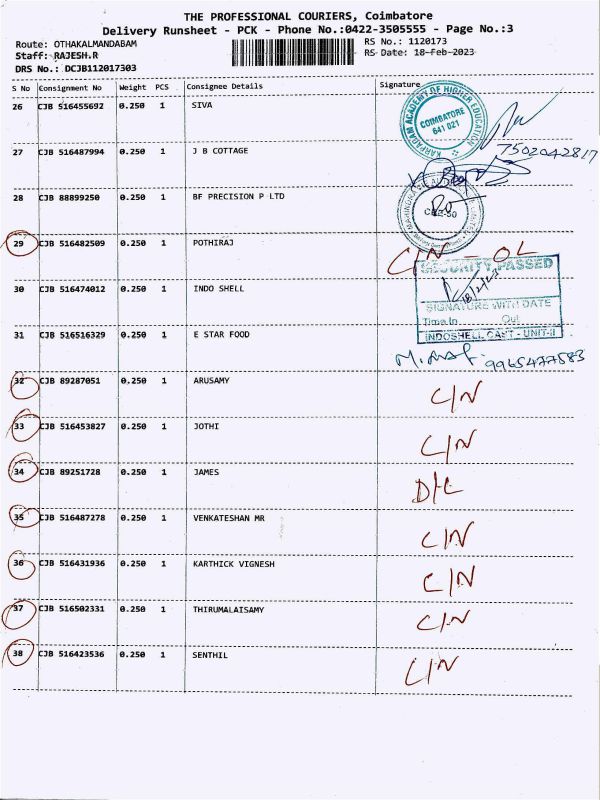 THE PROFESSIONAL COURIERS, Coimbatore
Delivery Runsheet - PCK - Phone No.:0422-3505555 - Page No.:3
Route: OTHAKALMANDABAM
RS No.: 1120173
Staff: RAJESH.R
RS Date: 18-Feb-2023
DRS No.: DCJB112017303
S No Consignment No Weight PCS Consignee Details Signature
26 CJB 516455692 0.250 1 SIVA
KARPAGAM ACADEMY OF HIGHER EDUCATION
COIMBATORE
641 021
27 CJB 516487994 0.250 1 J B COTTAGE
7502042817
28 CJB 88899250 0.250 1 BF PRECISION P LTD
CBE-50
29 CJB 516482509 0.250 1 POTHIRAJ
C/N - OL
30 CJB 516474012 0.250 1 INDO SHELL
SECURITY PASSED
18/2/23
SIGNATURE WITH DATE
Time.In Out
INDOSHELL CAST - UNIT-II
31 CJB 516516329 0.250 1 E STAR FOOD
9965477583
32 CJB 89287051 0.250 1 ARUSAMY C/N
33 CJB 516453827 0.250 1 JOTHI C/N
34 CJB 89251728 0.250 1 JAMES D/L
35 CJB 516487278 0.250 1 VENKATESHAN MR C/N
36 CJB 516431936 0.250 1 KARTHICK VIGNESH C/N
37 CJB 516502331 0.250 1 THIRUMALAISAMY C/N
38 CJB 516423536 0.250 1 SENTHIL C/N